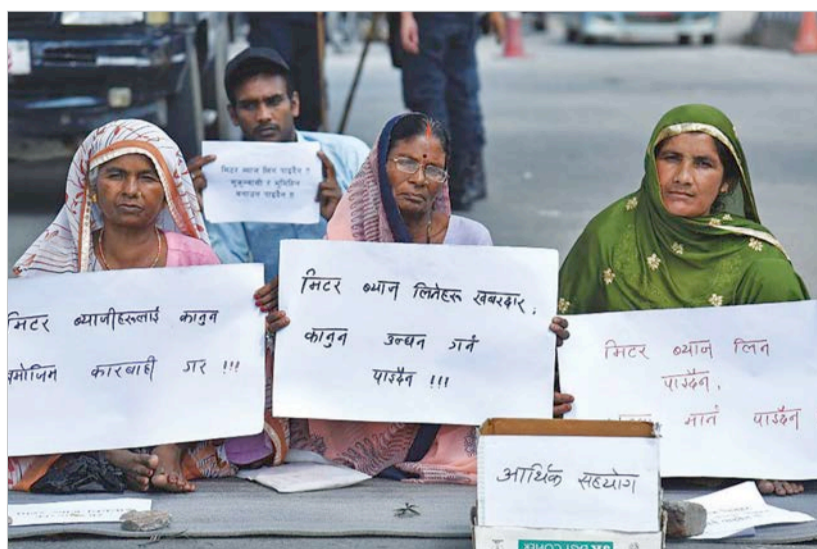 मिटर ब्याज लिन पाइदैन !!
सुकुम्वासी र भुमिहिन
बनाउन पाइदैन !!
मिटर ब्याजीहरुलाई कानुन
बमोजिम कारबाही गर !!!
मिटर ब्याज लिनेहरू खबरदार,
कानुन उल्घन गर्न
पाइदैन !!!
मिटर ब्याज लिन
पाइदैन,
मार्न पाइदैन
आर्थिक सहयोग